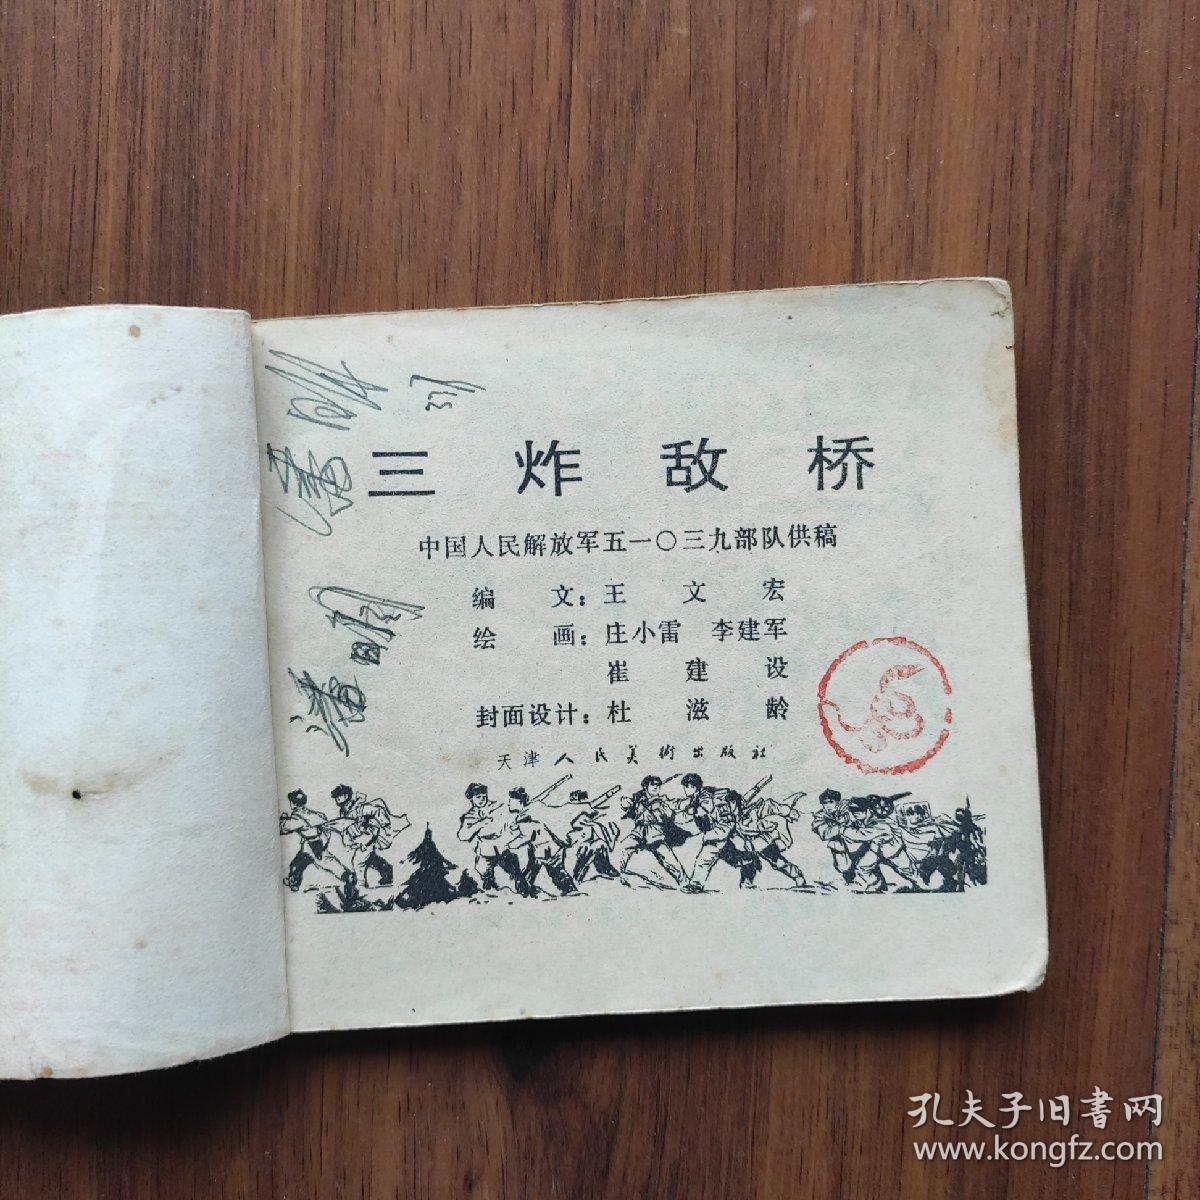 三炸敌桥
中国人民解放军五一〇三九部队供稿
编 文：王 文 宏
绘 画：庄小雷 李建军
崔 建 设
封面设计：杜 滋 龄
天津人民美術出版社
孔夫子旧書网
www.kongfz.com